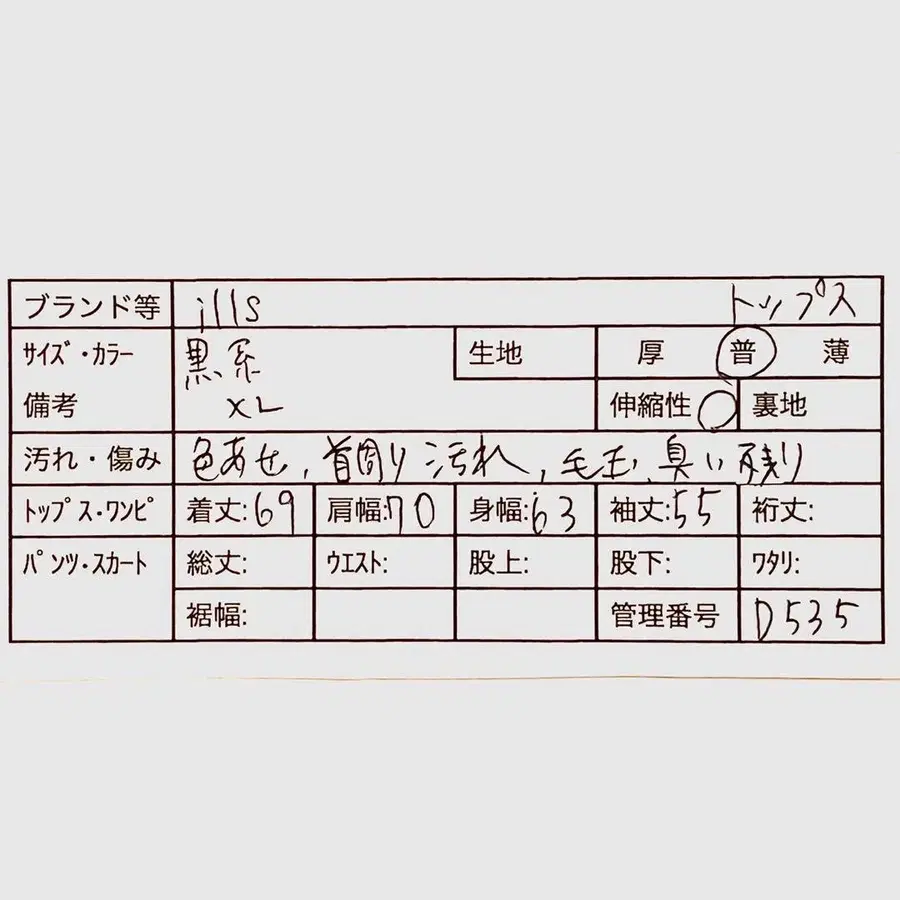 ブランド等 ills トップス
サイズ・カラー 黒系 生地 厚 普 薄
備考 XL 伸縮性 ○ 裏地
汚れ・傷み 色あせ, 首周り汚れ, 毛玉, 臭い残り
トップス・ワンピ 着丈:69 肩幅:70 身幅:63 袖丈:55 裄丈:
パンツ・スカート 総丈: ウエスト: 股上: 股下: ワタリ:
裾幅: 管理番号 D535